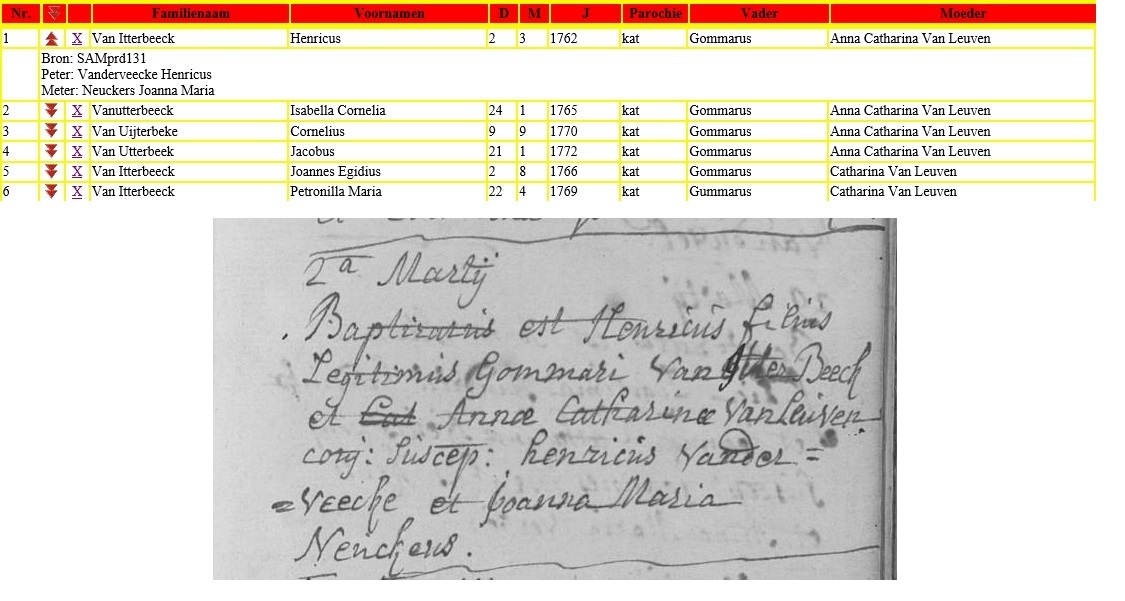 Nr. Familienaam Voornamen D M J Parochie Vader Moeder
1 X Van Itterbeeck Henricus 2 3 1762 kat Gommarus Anna Catharina Van Leuven
Bron: SAMprd131
Peter: Vanderveecke Henricus
Meter: Neuckers Joanna Maria
2 X Vanutterbeeck Isabella Cornelia 24 1 1765 kat Gommarus Anna Catharina Van Leuven
3 X Van Uijterbeke Cornelius 9 9 1770 kat Gommarus Anna Catharina Van Leuven
4 X Van Utterbeek Jacobus 21 1 1772 kat Gommarus Anna Catharina Van Leuven
5 X Van Itterbeeck Joannes Egidius 2 8 1766 kat Gommarus Catharina Van Leuven
6 X Van Itterbeeck Petronilla Maria 22 4 1769 kat Gummarus Catharina Van Leuven
2ᵃ Martij
Baptizatus est Henricus filius
Legitimus Gommari Van Itter Beeck
et Cat Annæ Catharinæ Van Leuven
conj: Suscep: henricus Vander =
= Veecke et Joanna Maria
Neuckens.